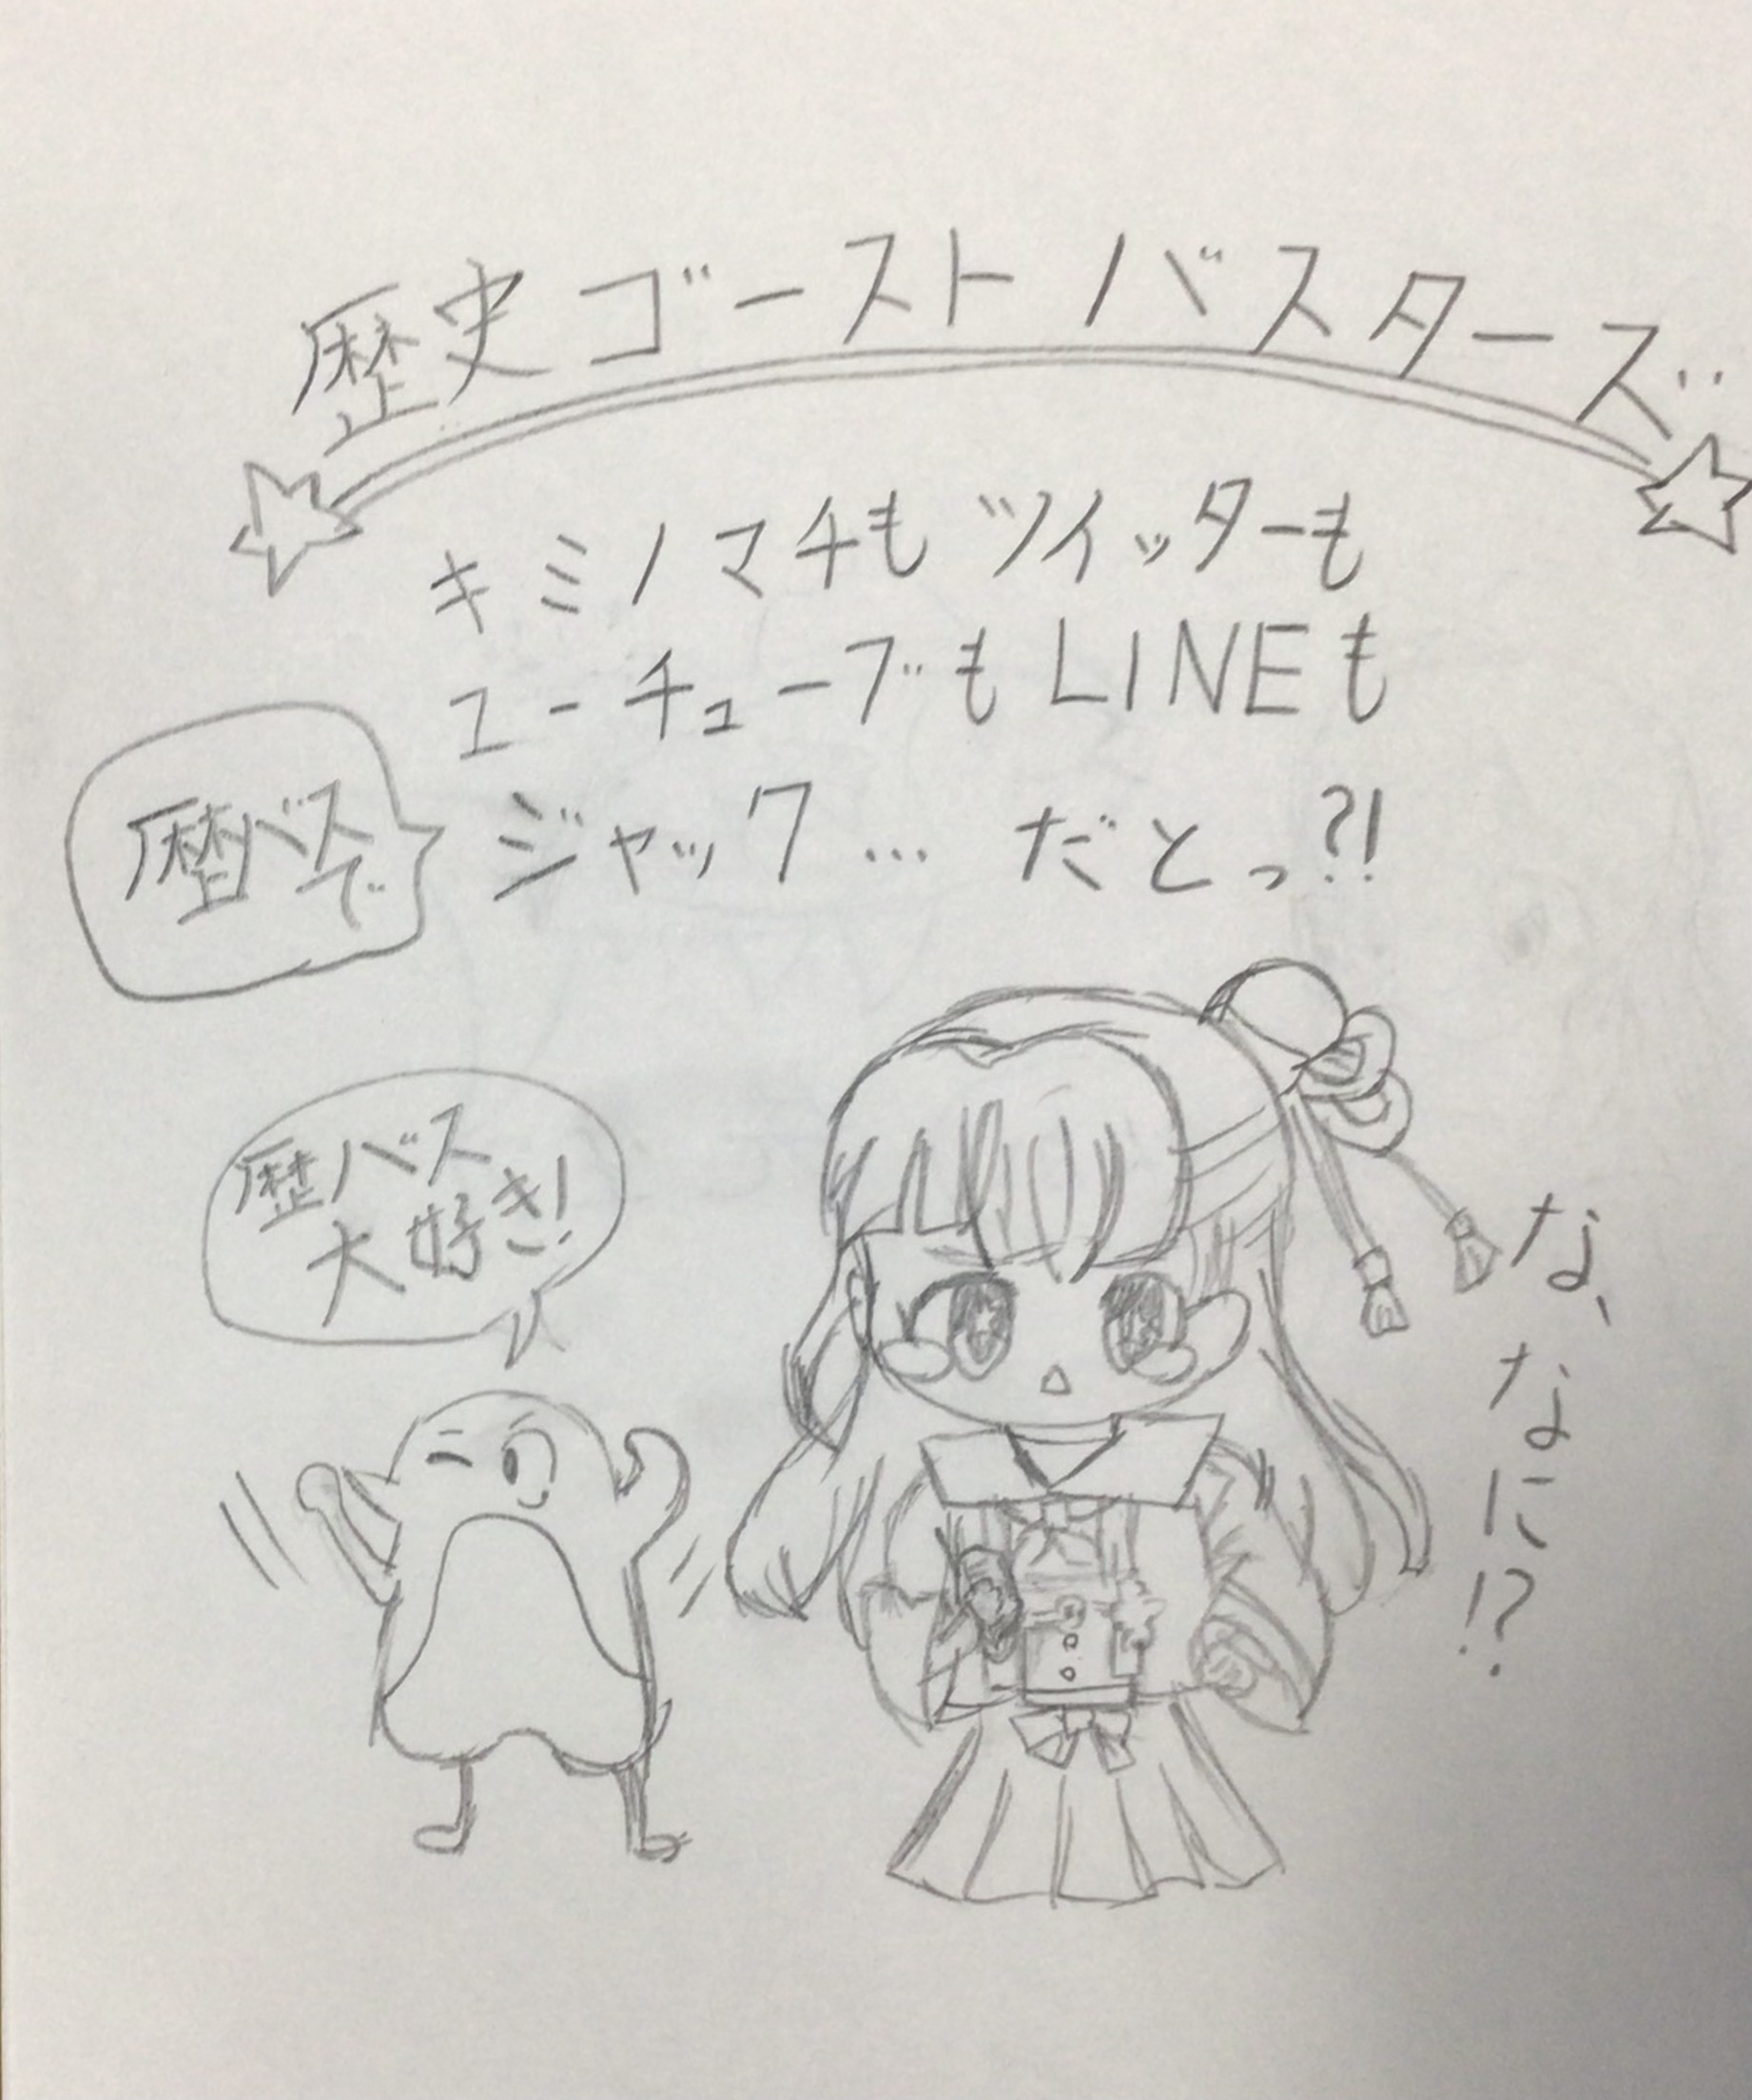 歴史ゴーストバスターズ
キミノマチも ツイッターも
ユーチューブも LINEも
歴バス
で
ジャック… だとっ?!
歴バス
大好き!
な、
なに!?